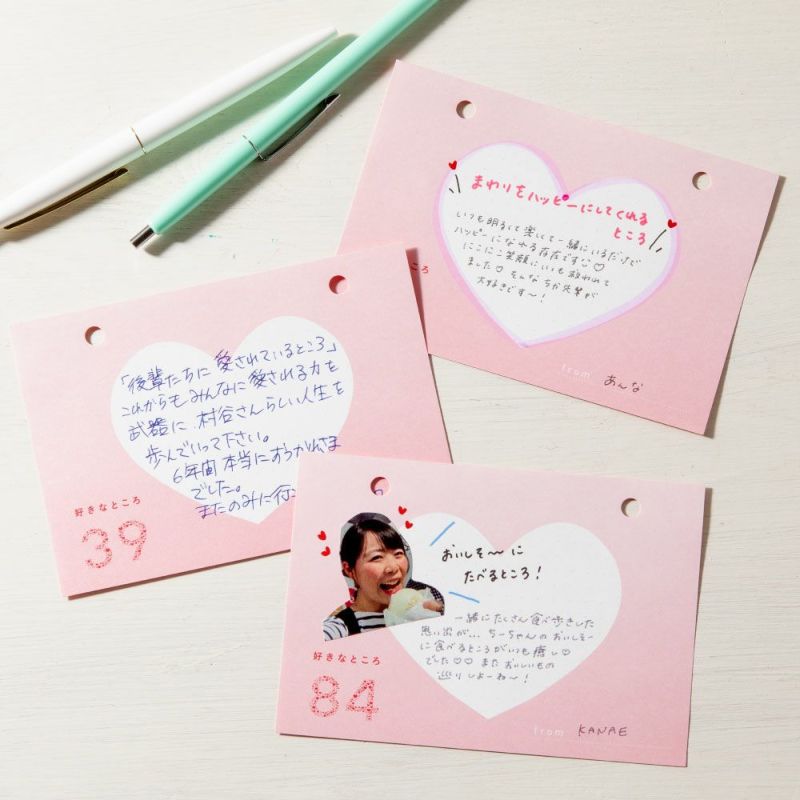 まわりをハッピーにしてくれる
ところ
いつも明るくて楽しくて一緒にいるだけで
ハッピーになれる存在です♡
にこにこ笑顔にいつも救われて
ました♡ そんなちか先輩が
大好きです〜!
ころ
from あんな
「後輩たちに愛されているところ」
これからもみんなに愛される力を
武器に、村谷さんらしい人生を
歩んでいって下さい。
6年間本当におつかれさま
でした。
またのみに行
好きなところ
39
おいしそ〜に
たべるところ!
一緒にたくさん食べ歩きした
思い出が... ちーちゃんのおいしそー
に食べるところがいつも癒し♡
でした♡♡ またおいしいもの
巡りしよーね〜!
好きなところ
84
from KANAE